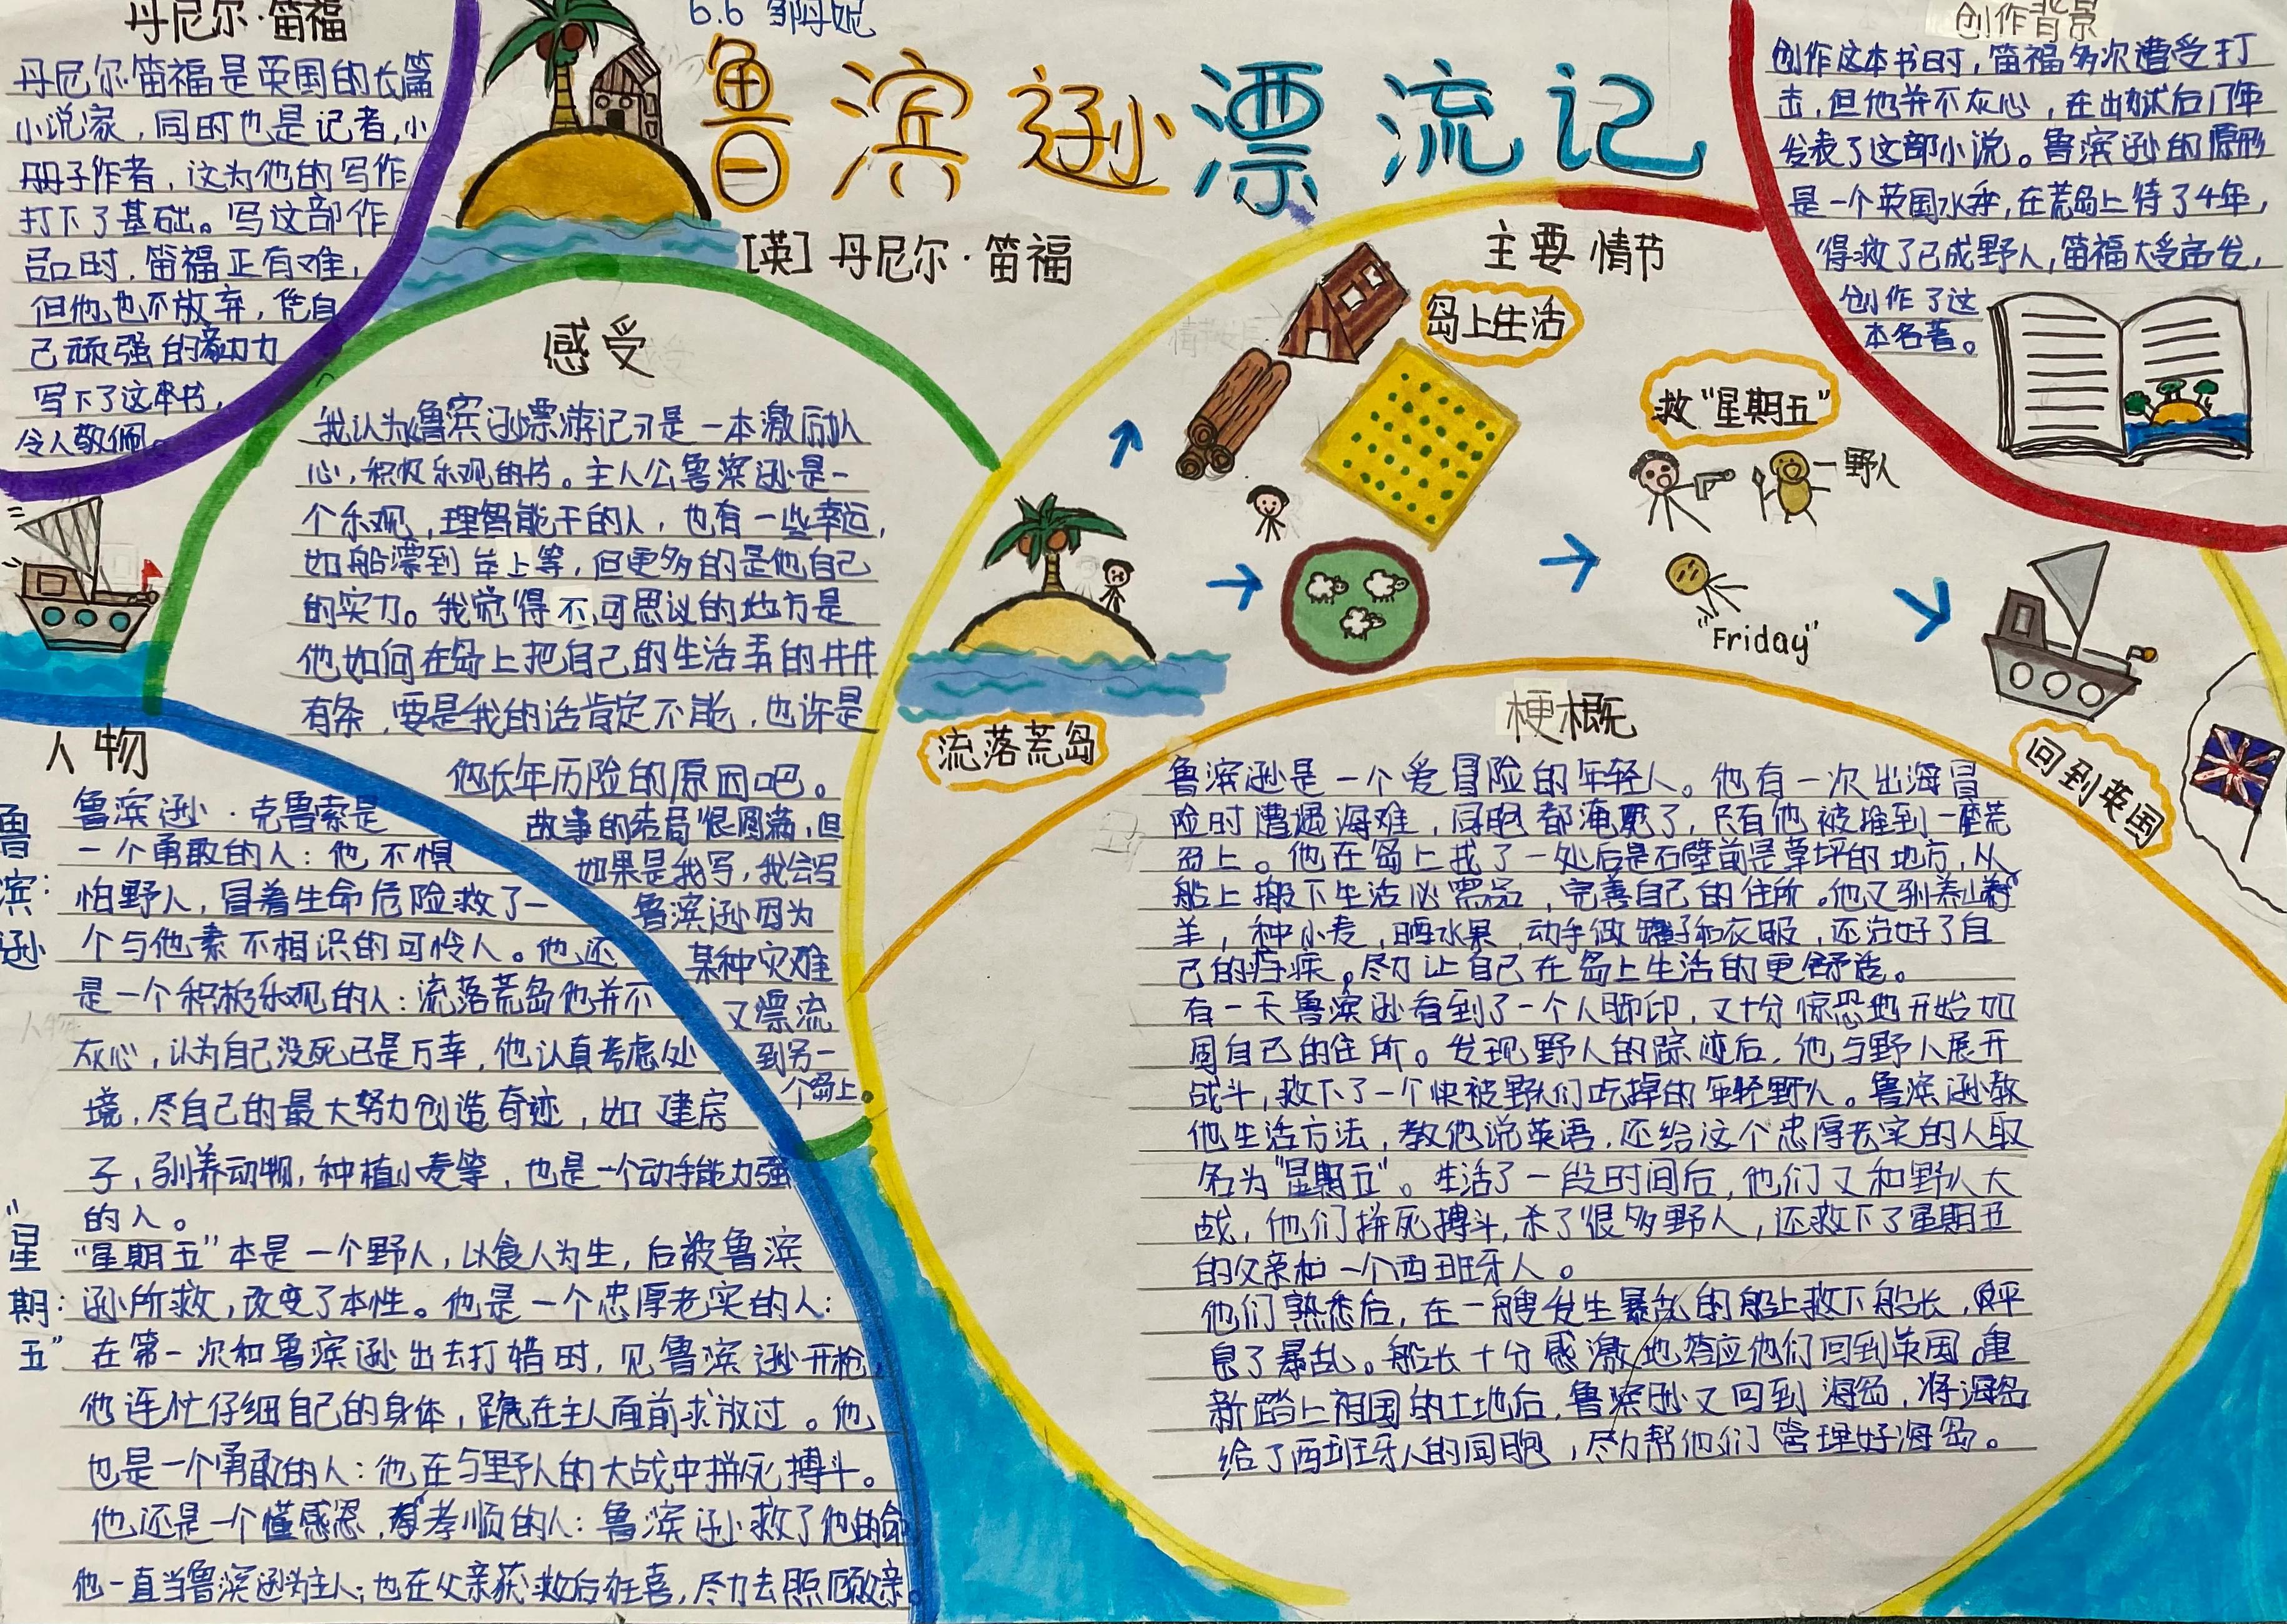 丹尼尔·笛福
丹尼尔·笛福是英国的长篇
小说家，同时也是记者，小
册子作者，这为他的写作
打下了基础。写这部作
品时，笛福正有难，
但他也不放弃，凭自
己顽强的毅力
写下了这本书，
令人敬佩。
6.6 邹丹妮
鲁滨逊漂流记
[英]丹尼尔·笛福
创作背景
创作这本书时，笛福多次遭受打
击，但他并不灰心，在出狱后门年
发表了这部小说。鲁滨逊的原形
是一个英国水手，在荒岛上待了4年，
得救了已成野人，笛福大受启发，
创作了这
本名著。
感受
我认为《鲁滨逊漂游记》是一本激励人
心，积极乐观的书。主人公鲁滨逊是一
个乐观，理智能干的人，也有一些幸运，
如船漂到岸上等，但更多的是他自己
的实力。我觉得不可思议的地方是
他如何在岛上把自己的生活弄的井井
有条，要是我的话肯定不能，也许是
他长年历险的原因吧。
故事的结局很圆满，但
如果是我写，我会写
鲁滨逊因为
某种灾难
又漂流
到另一
个岛上。
主要情节
岛上生活
救“星期五”
野人
"Friday"
流落荒岛
回到英国
人物
鲁滨逊：
鲁滨逊·克鲁索是
一个勇敢的人：他不惧
怕野人，冒着生命危险救了一
个与他素不相识的可怜人。他还
是一个积极乐观的人：流落荒岛他并不
灰心，认为自己没死已是万幸，他认真考虑处
境，尽自己的最大努力创造奇迹，如建房
子，驯养动物，种植小麦等，也是一个动手能力强
的人。
“星期五”
“星期五”本是一个野人，以食人为生，后被鲁滨
逊所救，改变了本性。他是一个忠厚老实的人：
在第一次和鲁滨逊出去打猎时，见鲁滨逊开枪，
他连忙仔细自己的身体，跪在主人面前求放过。他
也是一个勇敢的人：他在与野人的大战中拼死搏斗。
他还是一个懂感恩，孝顺的人：鲁滨逊救了他的命
他一直当鲁滨逊为主人；也在父亲获救后狂喜，尽力去照顾父亲。
梗概
鲁滨逊是一个爱冒险的年轻人。他有一次出海冒
险时遭遇海难，同胞都淹死了，只有他被推到一座荒
岛上。他在岛上找了一处后是石壁前是草坪的地方，从
船上搬下生活必需品，完善自己的住所。他又驯养山
羊，种小麦，晒水果，动手做罐子和衣服，还治好了自
己的疟疾。尽力让自己在岛上生活的更舒适。
有一天鲁滨逊看到了一个人脚印，又十分惊恐地开始加
固自己的住所。发现野人的踪迹后，他与野人展开
战斗，救下了一个快被野人们吃掉的年轻野人。鲁滨逊教
他生活方法，教他说英语，还给这个忠厚老实的人取
名为“星期五”。生活了一段时间后，他们又和野人大
战，他们拼死搏斗，杀了很多野人，还救下了星期五
的父亲和一个西班牙人。
他们熟悉后，在一艘发生暴乱的船上救下船长，平
息了暴乱。船长十分感激地答应他们回到英国，重
新踏上祖国的土地后，鲁滨逊又回到海岛，将海岛
给了西班牙人的同胞，尽力帮他们管理好海岛。